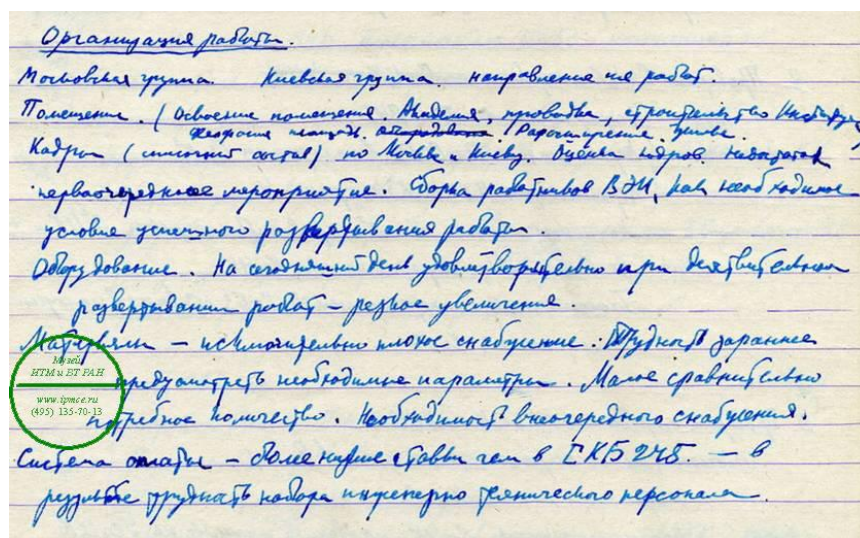 Организация работы.
Московская группа. Киевская группа. направление их работ.
Помещение. (Освоение помещения. Академия, проводка, строительство Института
площадь. Расширение
Кадры (списочный состав) по Москве и Киеву. Оценка кадров. недостаток
первоочередное мероприятие. Сборка работников ВЭИ, как необходимое
условие успешного развертывания работы.
Оборудование. На сегодняшний день удовлетворительно при действительном
развертывании работ – резкое увеличение.
Материалы – исключительно плохое снабжение. Трудность заранее
предусмотреть необходимые параметры. Малое сравнительно
потребное количество. Необходимость внеочередного снабжения.
Система оплаты – более низкие ставки чем в СКБ 245. – в
результате трудность набора инженерно технического персонала.
Музей
ИТМ и ВТ РАН
www.ipmce.ru
(495) 135-70-13